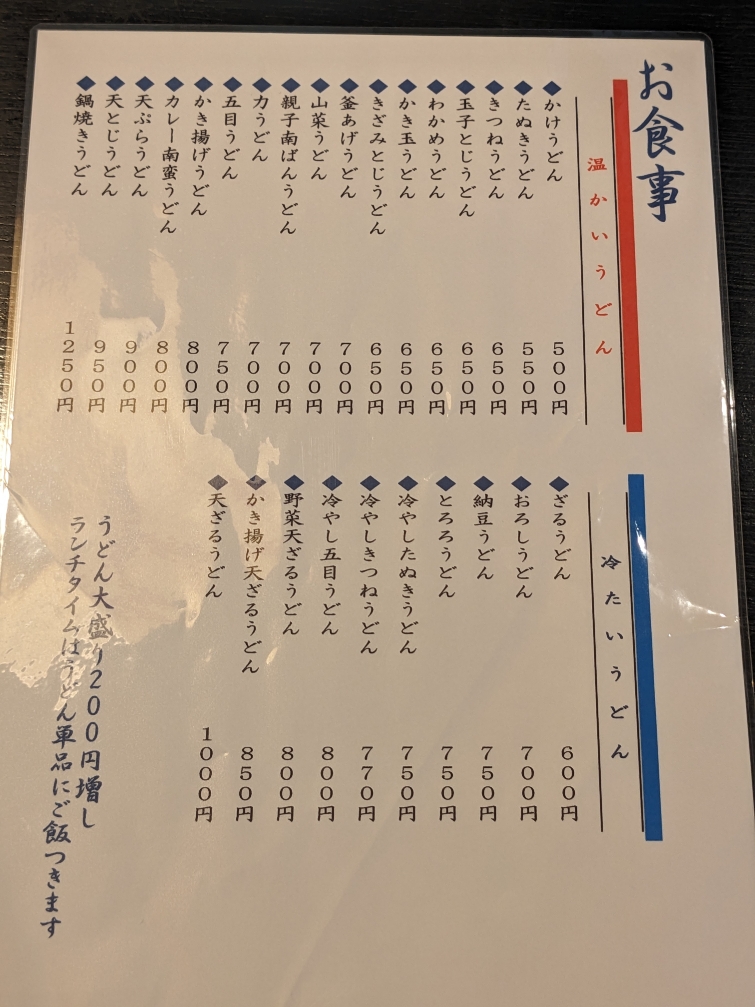 お食事
温かいうどん
◆かけうどん 500円
◆たぬきうどん 550円
◆きつねうどん 650円
◆玉子とじうどん 650円
◆わかめうどん 650円
◆かき玉うどん 650円
◆きざみとじうどん 650円
◆釜あげうどん 700円
◆山菜うどん 700円
◆親子南ばんうどん 700円
◆力うどん 700円
◆五目うどん 750円
◆かき揚げうどん 800円
◆カレー南蛮うどん 800円
◆天ぷらうどん 900円
◆天とじうどん 950円
◆鍋焼きうどん 1250円
冷たいうどん
◆ざるうどん 600円
◆おろしうどん 700円
◆納豆うどん 750円
◆とろろうどん 750円
◆冷やしたぬきうどん 750円
◆冷やしきつねうどん 770円
◆冷やし五目うどん 800円
◆野菜天ざるうどん 800円
◆かき揚げ天ざるうどん 850円
◆天ざるうどん 1000円
うどん大盛り200円増し
ランチタイムはうどん単品にご飯つきます